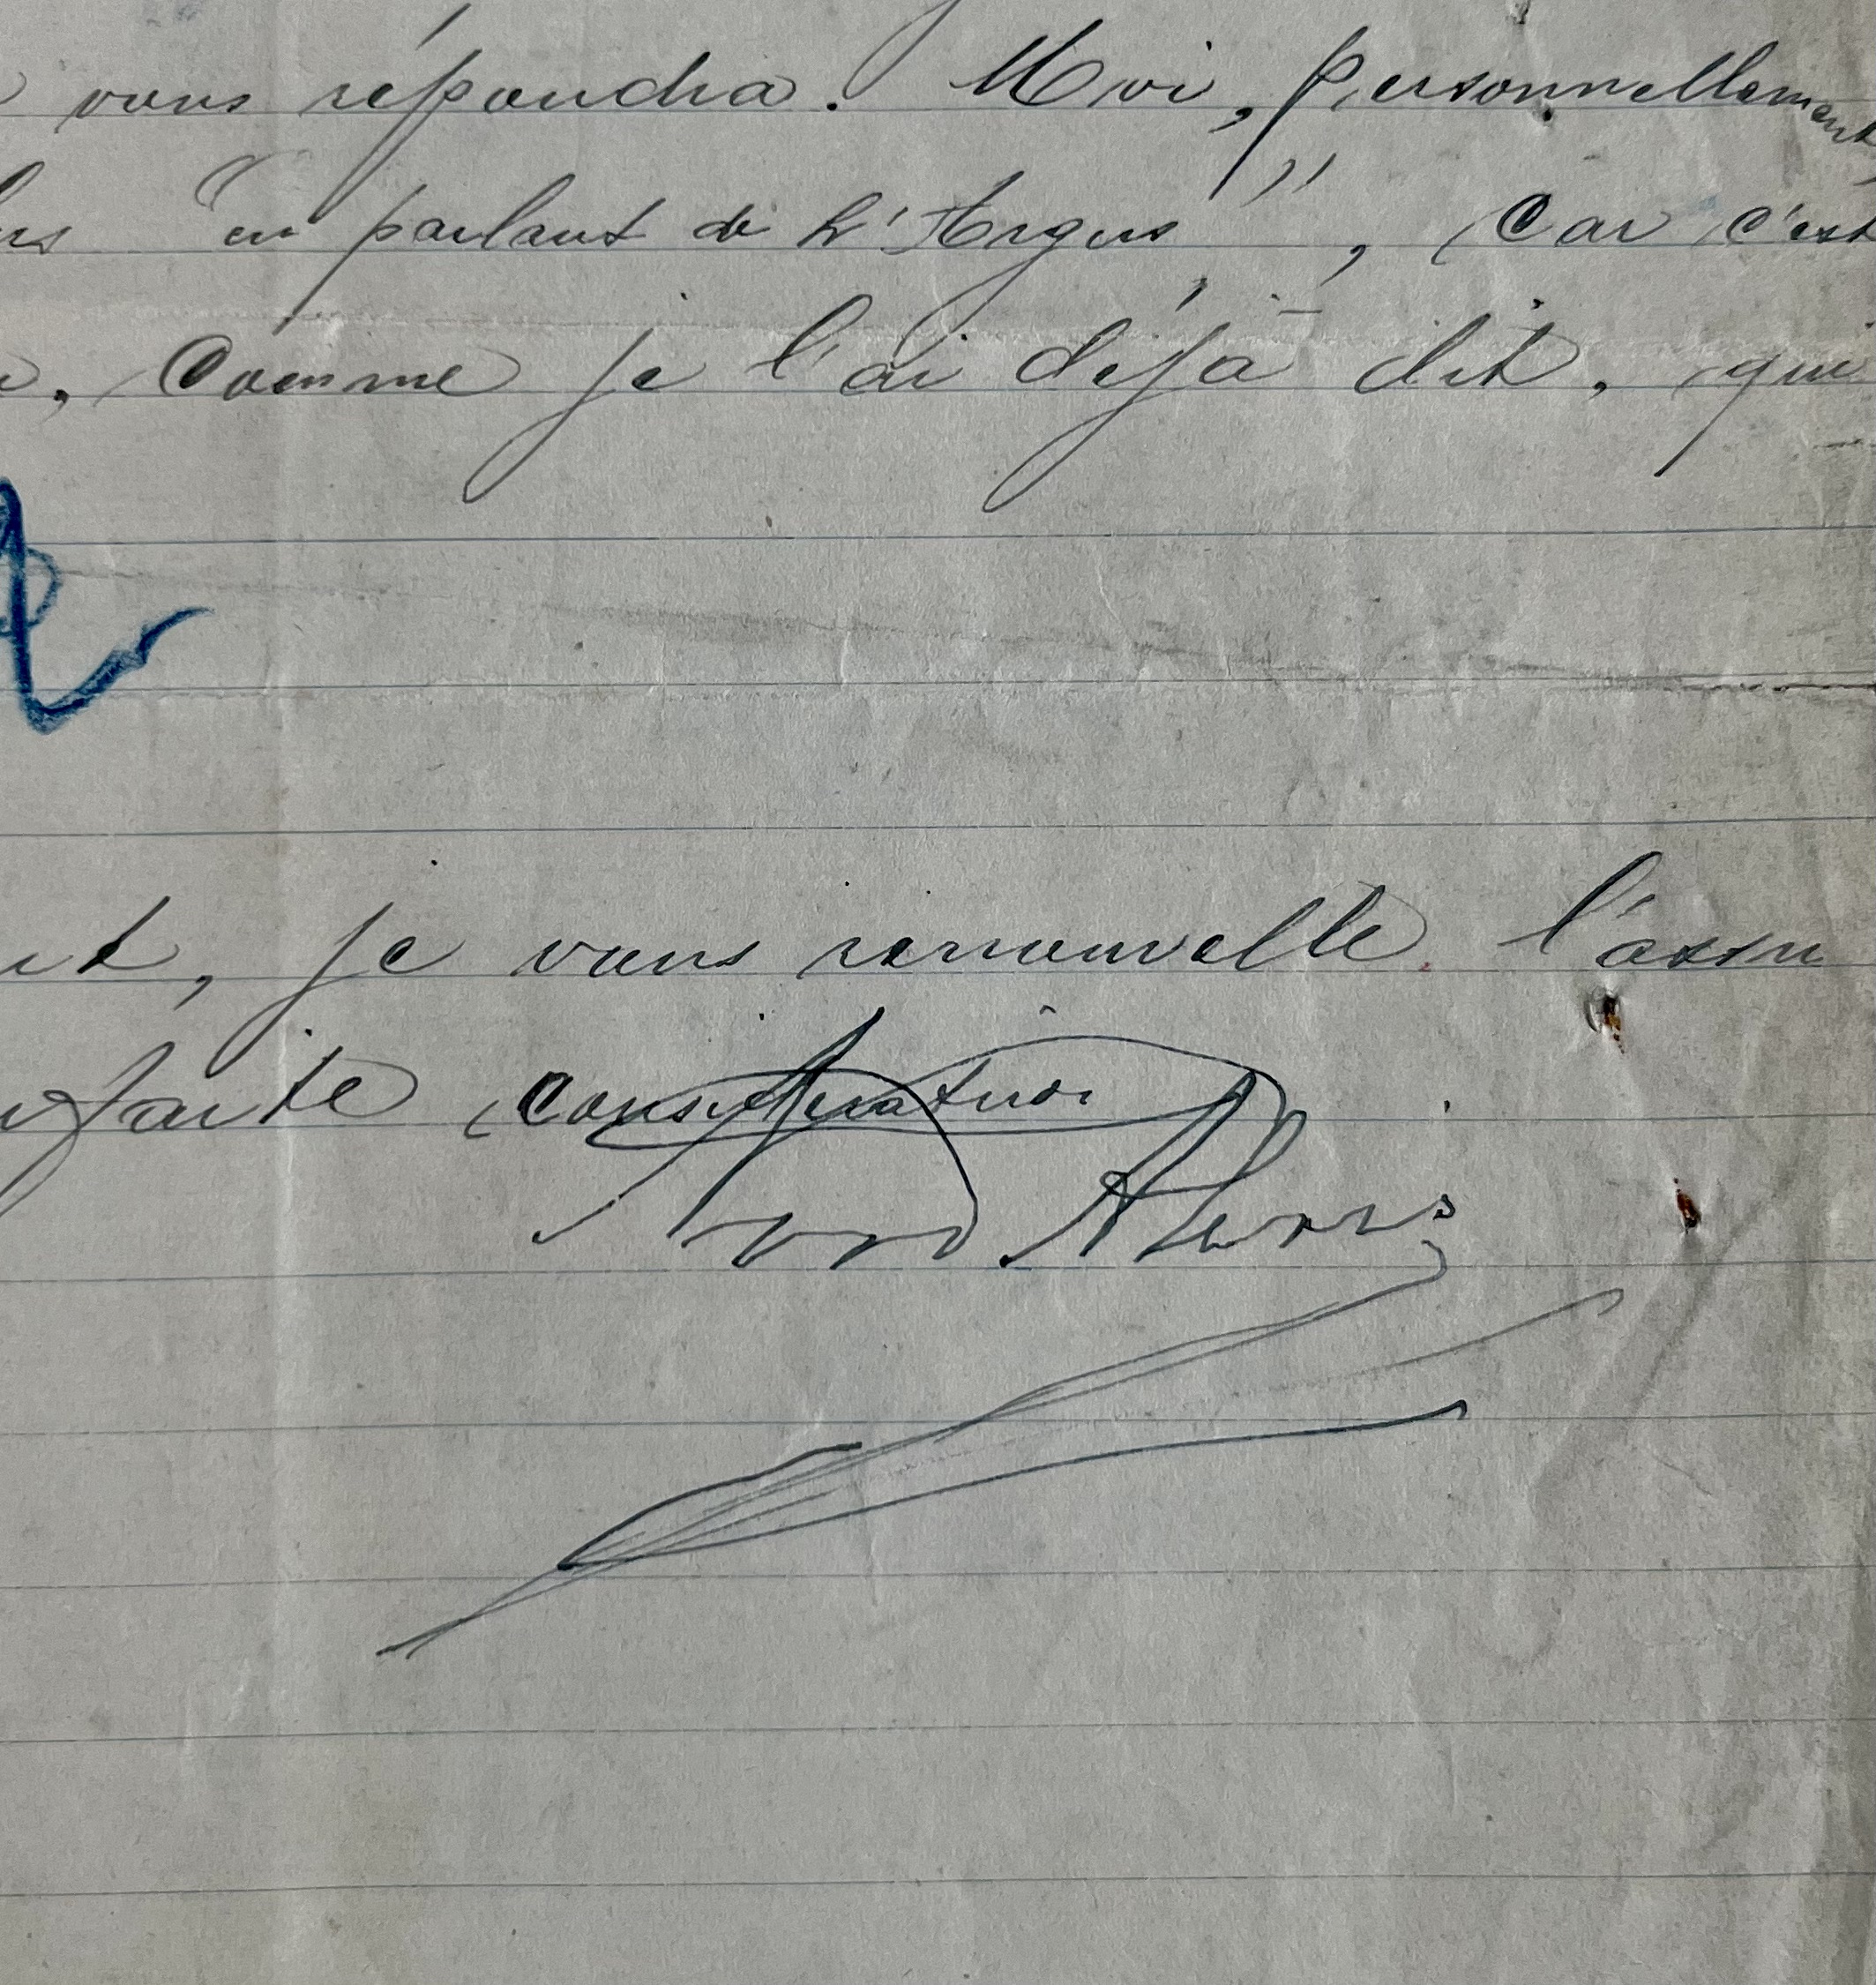 vous répondra. Moi, personnellement
" en parlant de L'Argus ", car c'est
, comme je l'ai déjà dit, qui
, je vous renouvelle l'assu
faite considération